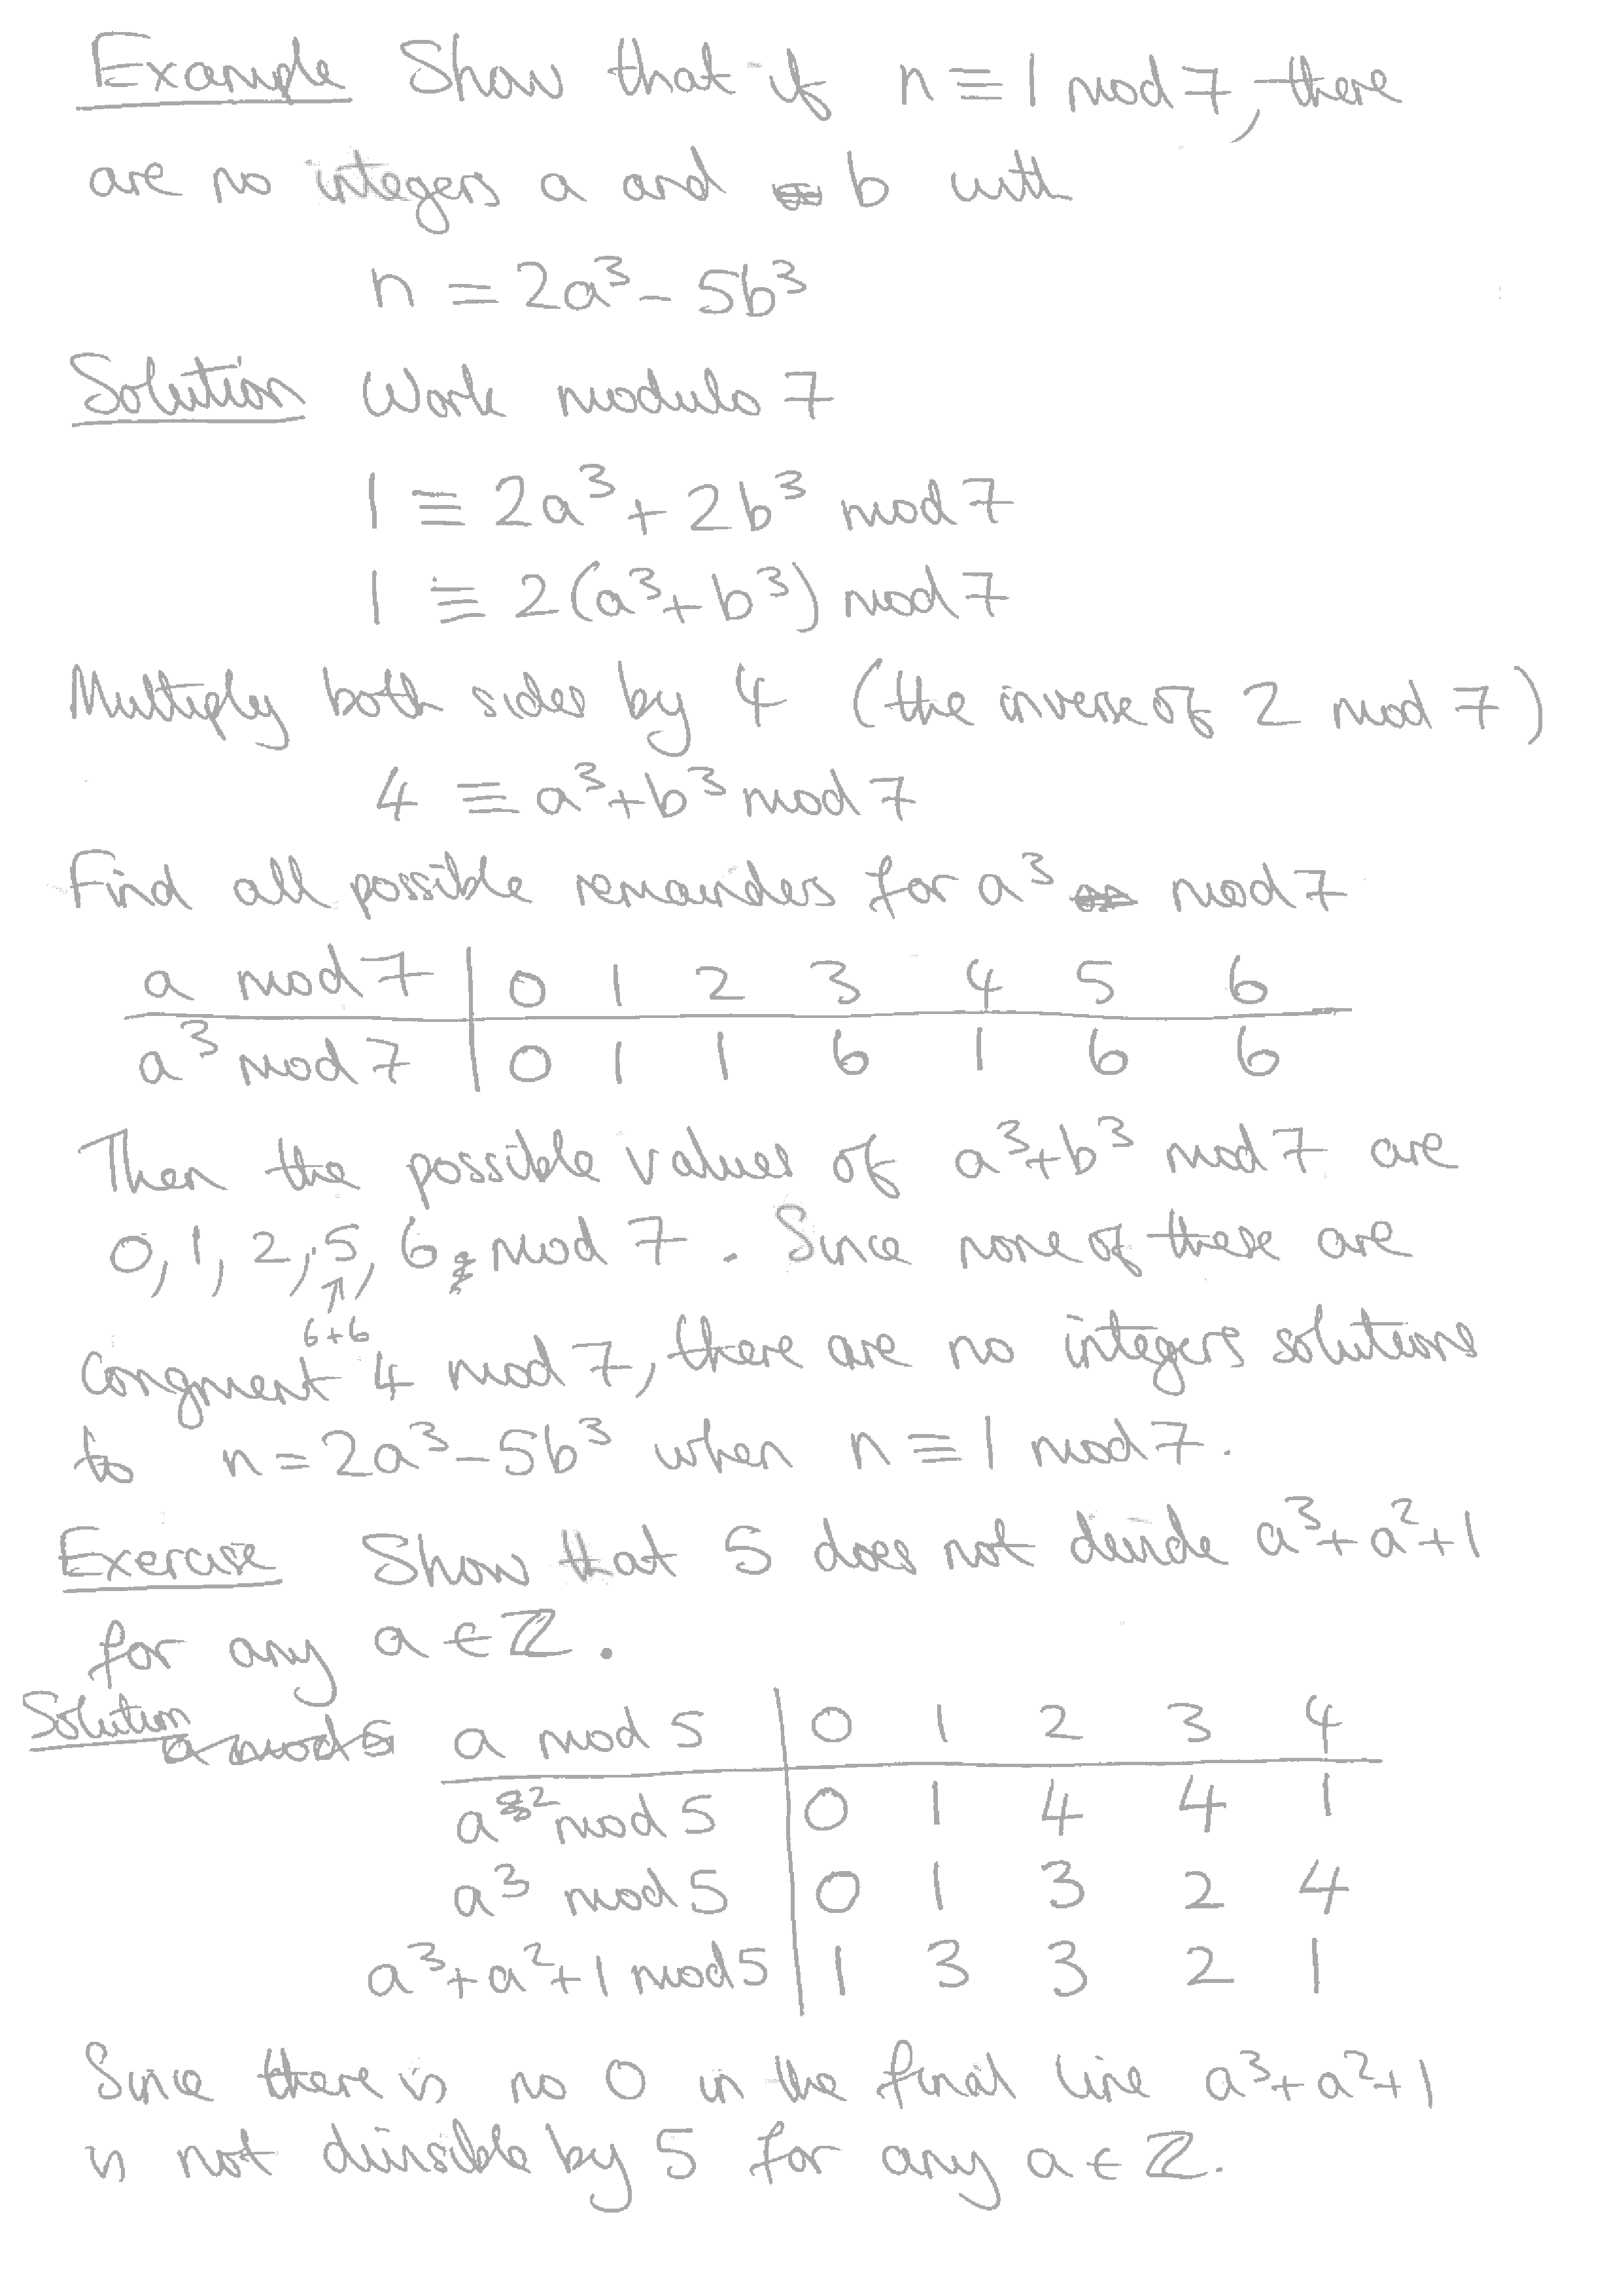 Example Show that if n ≡ 1 mod 7, there
are no integers a and b with
n = 2a³ - 5b³
Solution Work modulo 7
1 ≡ 2a³ + 2b³ mod 7
1 ≡ 2(a³+b³) mod 7
Multiply both sides by 4 (the inverse of 2 mod 7)
4 ≡ a³+b³ mod 7
Find all possible remainders for a³ mod 7
a mod 7 | 0 1 2 3 4 5 6
a³ mod 7 | 0 1 1 6 1 6 6
Then the possible values of a³+b³ mod 7 are
0, 1, 2, 5, 6 mod 7. Since none of these are
↑
6+6
congruent 4 mod 7, there are no integers solutions
to n = 2a³-5b³ when n ≡ 1 mod 7.
Exercise Show that 5 does not divide a³+a²+1
for any a ∈ ℤ.
Solution a mod 5 a mod 5 | 0 1 2 3 4
a² mod 5 | 0 1 4 4 1
a³ mod 5 | 0 1 3 2 4
a³+a²+1 mod 5 | 1 3 3 2 1
Since there is no 0 in the final line a³+a²+1
is not divisible by 5 for any a ∈ ℤ.